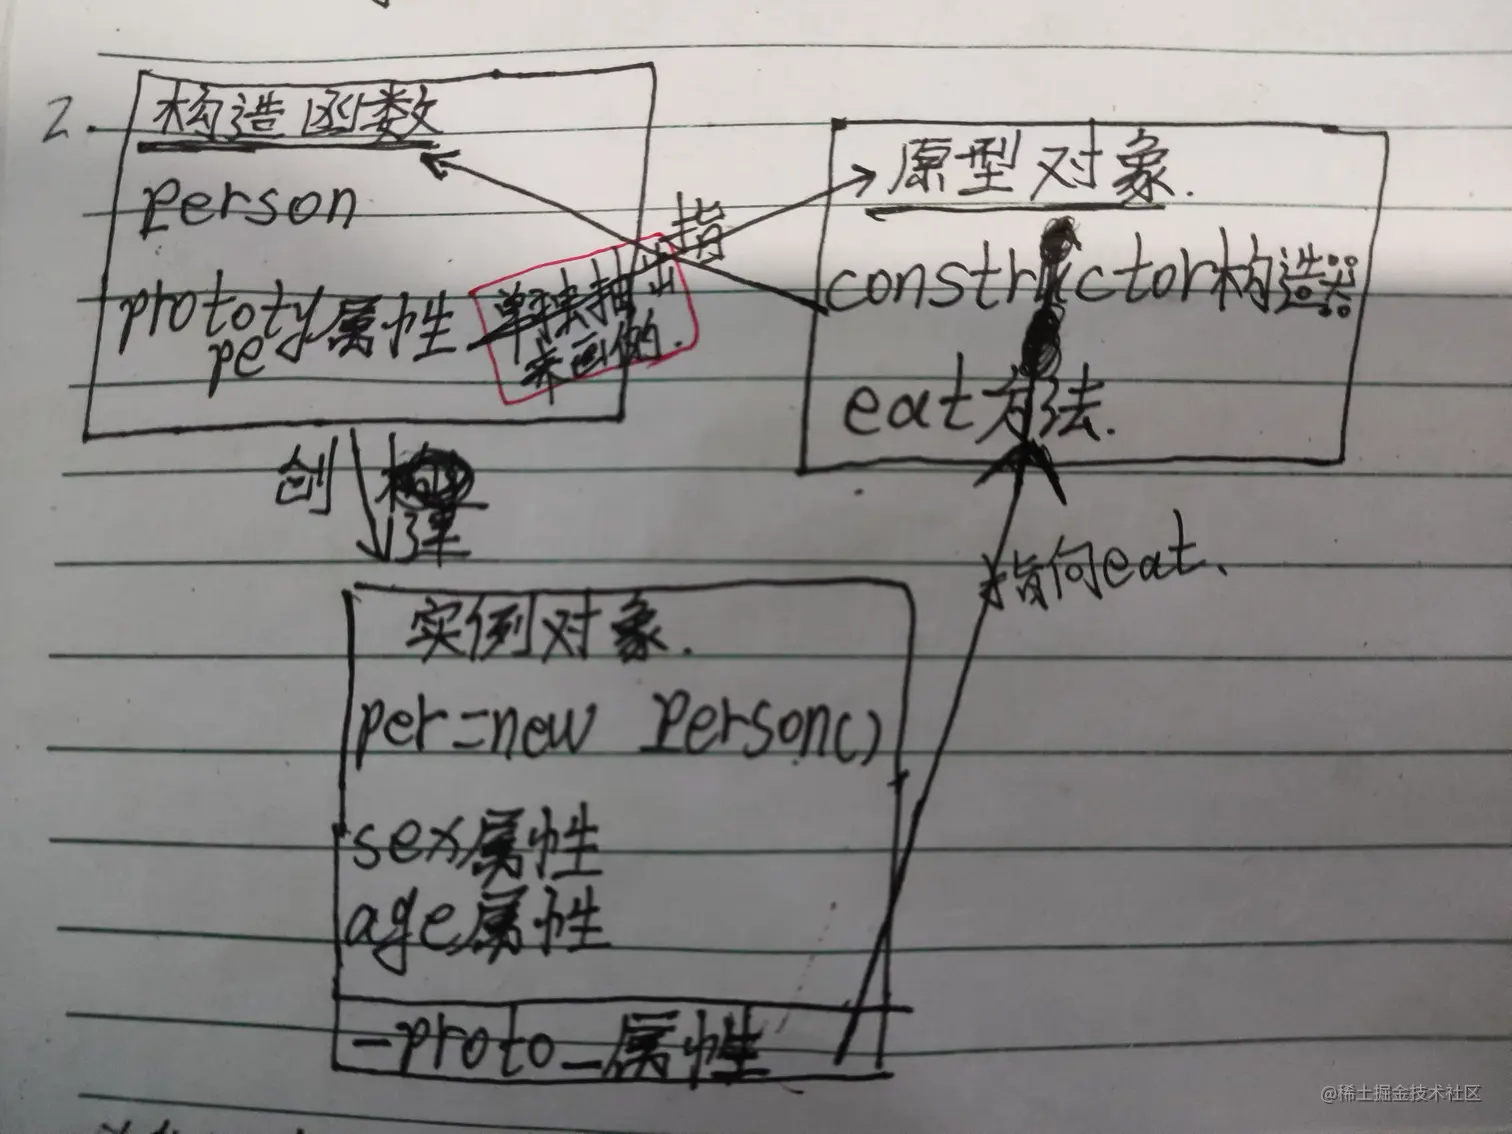 2.
构造函数
person
prototy属性
pe
单独抽出
来画的.
指
原型对象.
constructor构造器
eat方法.
创
建
指向eat、
实例对象.
per=new Person()
sex属性
age属性
_proto_属性
@稀土掘金技术社区